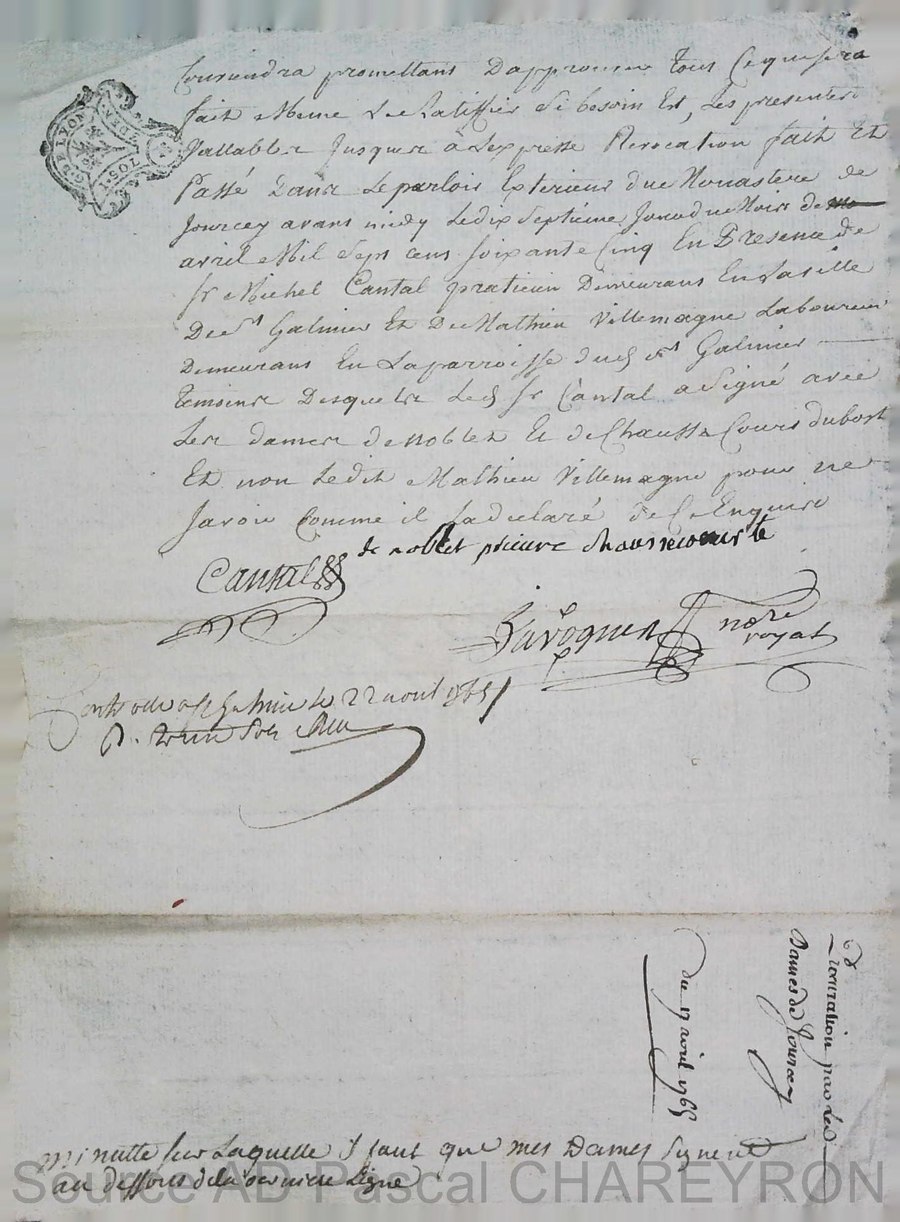 Conviendra promettans Dapprouver Tous Cequesera
fait Meme de Ratiffier Si besoin Est, Les presentes
Vallables Jusques a Lexpresse Revocation fait Et
Passé Dans Le parloir Exterieur due Monastere de
Jourcey avans midy Ledix Septieme Jour du Mois de
avril Mil Sept cens soixante Cinq En Presence de
Sr Michel Cantal praticien Demeurans En La ville
De St Galmier Et De Mathieu Villemagne Laboureur
Demeurans En La parroisse dud St Galmier
Temoins Desquels Led Sr Cantal a Signé avec
Les dames de noblet Et de Chausse Cours dubost
Et non Ledit Mathieu Villemagne pour ne
Savoir Comme il La declaré de Ce Enquis
de noblet prieure chaussecourte
Cantal
Ravognes
nore
royal
G DE LYON
I SOL
a St Galmier le 22 avril 1765
R. Sols
Procuration par Les
Dames de Jourcey
du 17 avril 1765
minutte sur Laquelle il faut que mes Dames Signent
au dessous de la derniere Ligne
Source AD Pascal CHAREYRON